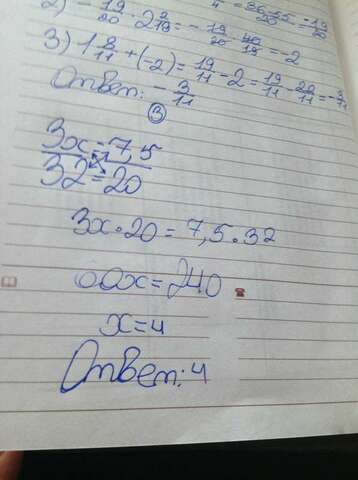 2) - 19/20 · 2 2/19 = - 19/20 · 40/19 = -2
3) 1 8/11 + (-2) = 19/11 - 2 = 19/11 - 22/11 = - 3/11
Ответ: - 3/11
③
3x = 7,5
32 = 20
3x · 20 = 7,5 · 32
60x = 240
x = 4
Ответ: 4